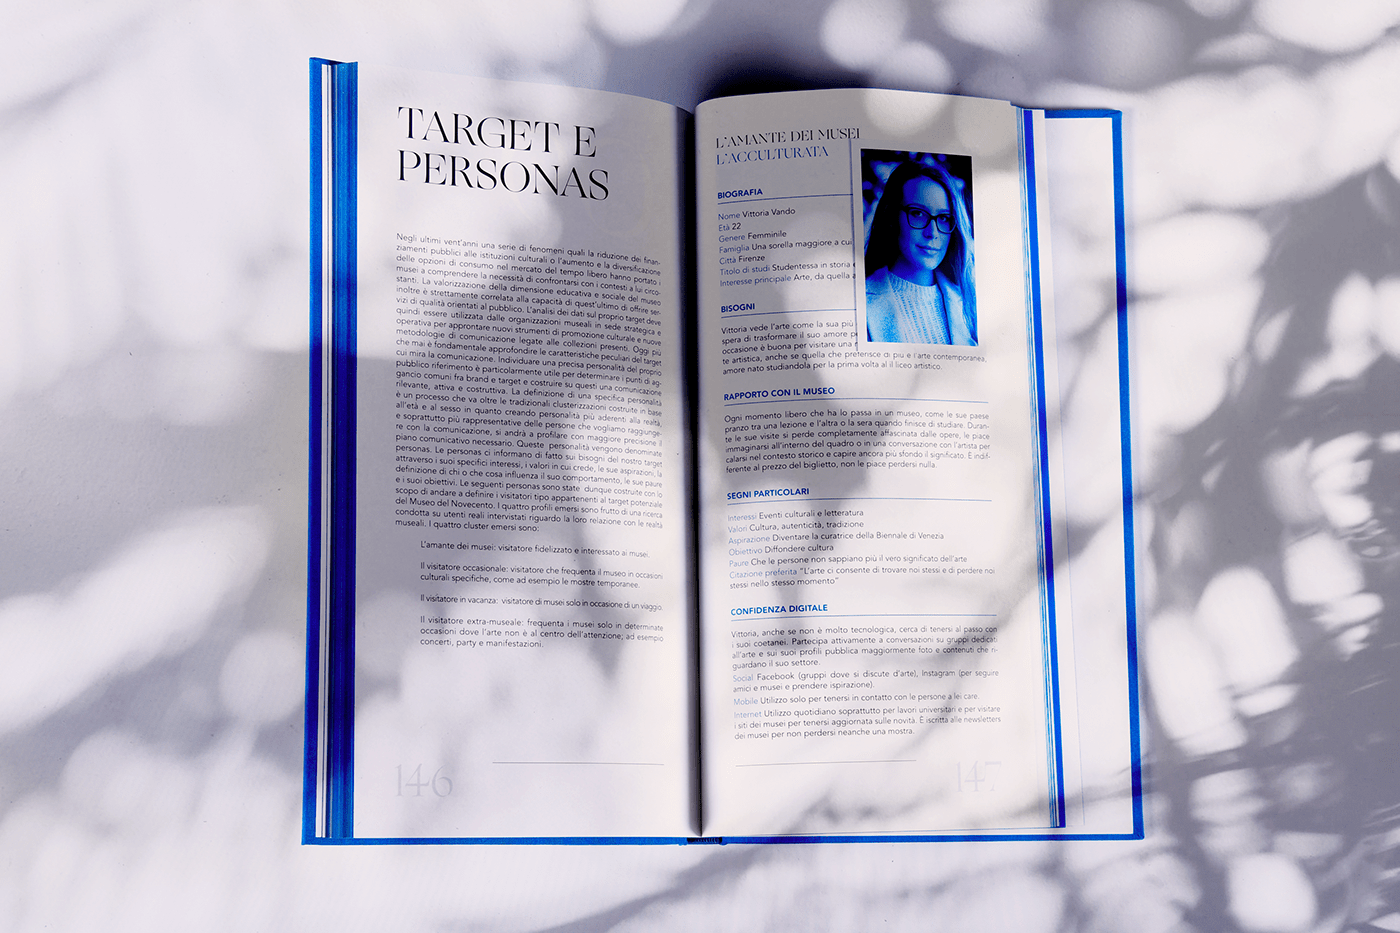 TARGET E
PERSONAS
Negli ultimi vent'anni una serie di fenomeni quali la riduzione dei finan-
ziamenti pubblici alle istituzioni culturali o l'aumento e la diversificazione
delle opzioni di consumo nel mercato del tempo libero hanno portato i
musei a comprendere la necessità di confrontarsi con i contesti a lui circo-
stanti. La valorizzazione della dimensione educativa e sociale del museo
inoltre è strettamente correlata alla capacità di quest'ultimo di offrire ser-
vizi di qualità orientati al pubblico. L'analisi dei dati sul proprio target deve
quindi essere utilizzata dalle organizzazioni museali in sede strategica e
operativa per approntare nuovi strumenti di promozione culturale e nuove
metodologie di comunicazione legate alle collezioni presenti. Oggi più
che mai è fondamentale approfondire le caratteristiche peculiari del target
cui mira la comunicazione. Individuare una precisa personalità del proprio
pubblico riferimento è particolarmente utile per determinare i punti di ag-
gancio comuni fra brand e target e costruire su questi una comunicazione
rilevante, attiva e costruttiva. La definizione di una specifica personalità
è un processo che va oltre le tradizionali clusterizzazioni costruite in base
all'età e al sesso in quanto creando personalità più aderenti alla realtà,
e soprattutto più rappresentative delle persone che vogliamo raggiunge-
re con la comunicazione, si andrà a profilare con maggiore precisione il
piano comunicativo necessario. Queste personalità vengono denominate
personas. Le personas ci informano di fatto sui bisogni del nostro target
attraverso i suoi specifici interessi, i valori in cui crede, le sue aspirazioni, la
definizione di chi o che cosa influenza il suo comportamento, le sue paure
e i suoi obiettivi. Le seguenti personas sono state dunque costruite con lo
scopo di andare a definire i visitatori tipo appartenenti al target potenziale
del Museo del Novecento. I quattro profili emersi sono frutto di una ricerca
condotta su utenti reali intervistati riguardo la loro relazione con le realtà
museali. I quattro cluster emersi sono:
L'amante dei musei: visitatore fidelizzato e interessato ai musei.
Il visitatore occasionale: visitatore che frequenta il museo in occasioni
culturali specifiche, come ad esempio le mostre temporanee.
Il visitatore in vacanza: visitatore di musei solo in occasione di un viaggio.
Il visitatore extra-museale: frequenta i musei solo in determinate
occasioni dove l'arte non è al centro dell'attenzione; ad esempio
concerti, party e manifestazioni.
146
L'AMANTE DEI MUSEI
L'ACCULTURATA
BIOGRAFIA
Nome Vittoria Vando
Età 22
Genere Femminile
Famiglia Una sorella maggiore a cui
Città Firenze
Titolo di studi Studentessa in storia
Interesse principale Arte, da quella a
BISOGNI
Vittoria vede l'arte come la sua più
spera di trasformare il suo amore pe
occasione è buona per visitare una
te artistica, anche se quella che preferisce di più è l'arte contemporanea,
amore nato studiandola per la prima volta al il liceo artistico.
RAPPORTO CON IL MUSEO
Ogni momento libero che ha lo passa in un museo, come le sue paese
pranzo tra una lezione e l'altra o la sera quando finisce di studiare. Duran-
te le sue visite si perde completamente affascinata dalle opere, le piace
immaginarsi all'interno del quadro o in una conversazione con l'artista per
calarsi nel contesto storico e capire ancora più sfondo il significato. È indif-
ferente al prezzo del biglietto, non le piace perdersi nulla.
SEGNI PARTICOLARI
Interessi Eventi culturali e letteratura
Valori Cultura, autenticità, tradizione
Aspirazione Diventare la curatrice della Biennale di Venezia
Obiettivo Diffondere cultura
Paure Che le persone non sappiano più il vero significato dell'arte
Citazione preferita "L'arte ci consente di trovare noi stessi e di perdere noi
stessi nello stesso momento"
CONFIDENZA DIGITALE
Vittoria, anche se non è molto tecnologica, cerca di tenersi al passo con
i suoi coetanei. Partecipa attivamente a conversazioni su gruppi dedicati
all'arte e sui suoi profili pubblica maggiormente foto e contenuti che ri-
guardano il suo settore.
Social Facebook (gruppi dove si discute d'arte), Instagram (per seguire
amici e musei e prendere ispirazione).
Mobile Utilizzo solo per tenersi in contatto con le persone a lei care.
Internet Utilizzo quotidiano soprattutto per lavori universitari e per visitare
i siti dei musei per tenersi aggiornata sulle novità. È iscritta alle newsletters
dei musei per non perdersi neanche una mostra.
147